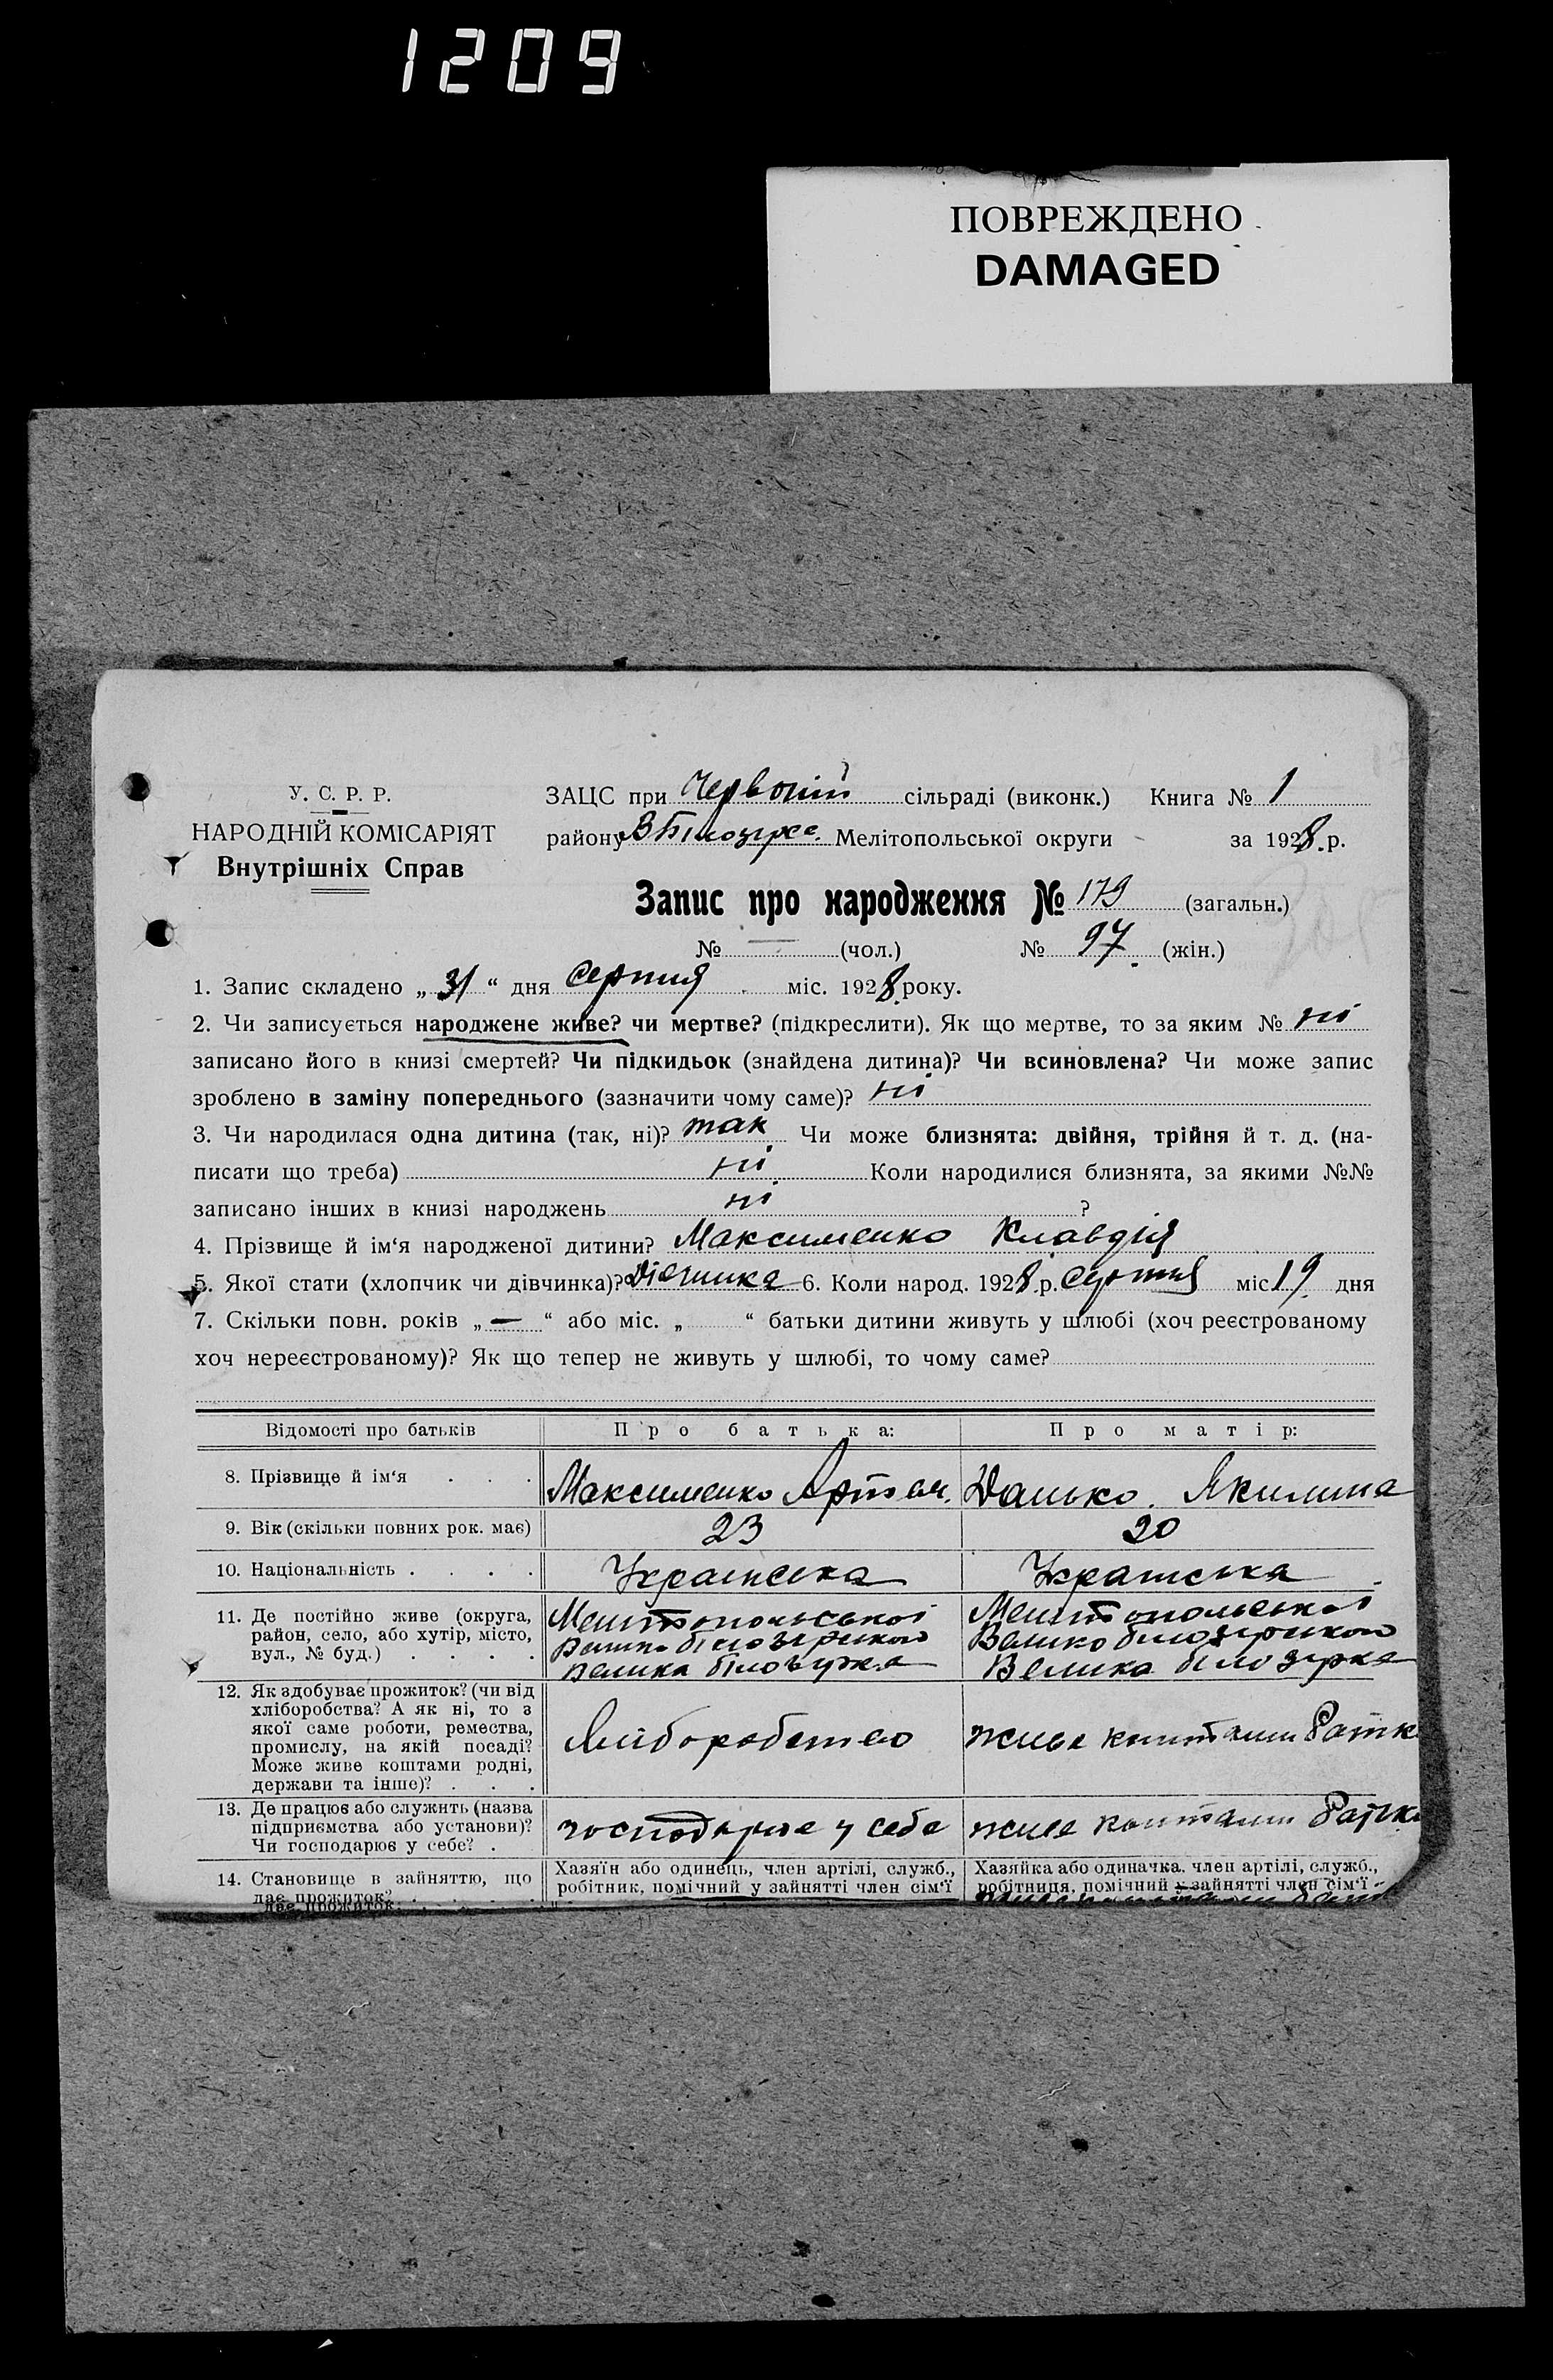 1209
ПОВРЕЖДЕНО
DAMAGED
У. С. Р. Р.
НАРОДНІЙ КОМІСАРІЯТ
Внутрішніх Справ
ЗАЦС при Червоній сільраді (виконк.) Книга № 1
району В Білозірка Мелітопольської округи за 1928 р.
Запис про народження № 179 (загальн.)
№ — (чол.) № 97 (жін.)
1. Запис складено „ 31 “ дня серпня міс. 1928 року.
2. Чи записується народжене живе? чи мертве? (підкреслити). Як що мертве, то за яким № ні
записано його в книзі смертей? Чи підкидьок (знайдена дитина)? Чи всиновлена? Чи може запис
зроблено в заміну попереднього (зазначити чому саме)? ні
3. Чи народилася одна дитина (так, ні)? так Чи може близнята: двійня, трійня й т. д. (на-
писати що треба) ні Коли народилися близнята, за якими №№
записано інших в книзі народжень ні ?
4. Прізвище й ім‘я народженої дитини? Максименко Клавдія
5. Якої стати (хлопчик чи дівчинка)? Дівчинка 6. Коли народ. 1928 р. серпня міс 19 дня
7. Скільки повн. років „ — “ або міс. „ “ батьки дитини живуть у шлюбі (хоч реєстрованому
хоч нереєстрованому)? Як що тепер не живуть у шлюбі, то чому саме?
Відомості про батьків Про батька: Про матір:
8. Прізвище й ім‘я Максименко Артем. Данько. Якилина
9. Вік (скільки повних рок. має) 23 20
10. Національність Українська Українська
11. Де постійно живе (округа, Мелітопольської Мелітопольської
район, село, або хутір, місто, Велико білозірського Велико білозірського
вул., № буд.) Велика білозірка Велика білозірка
12. Як здобуває прожиток? (чи від
хліборобства? А як ні, то з
якої саме роботи, ремества,
промислу, на якій посаді? Хліборобство живе коштами батьк
Може живе коштами родні,
держави та інше)?
13. Де працює або служить (назва
підприємства або установи)? господарює у себе живе коштами батьк
Чи господарює у себе?
14. Становище в зайняттю, що Хазяїн або одинець, член артілі, служб., Хазяйка або одиначка. член артілі, служб.,
дає прожиток? робітник, помічний у зайнятті член сім‘ї робітниця, помічний у зайнятті член сім‘ї